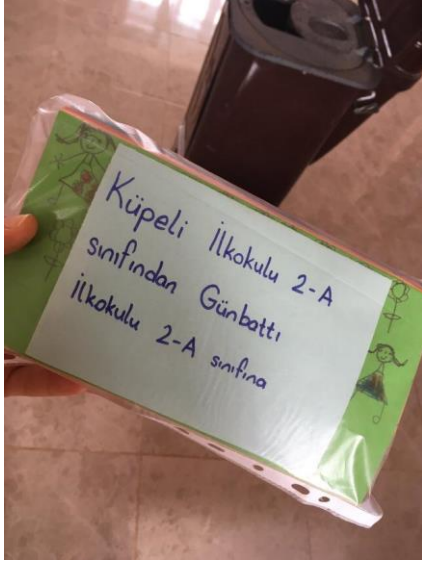 Küpeli İlkokulu 2-A
sınıfından Günbattı
İlkokulu 2-A sınıfına